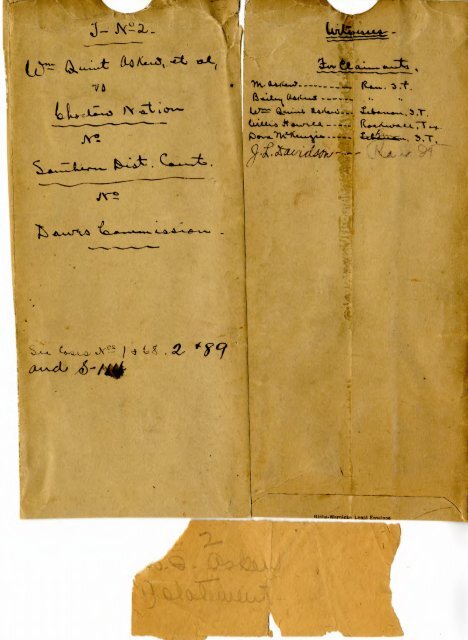 J- No 2-
Wm Quint Askew, et al,
vs
Choctaw Nation
No
Southern Dist. Court.
No
Dawes Commission.
See Cases Nos 1 & 68. 2 & 89
and S-
Witnesses.
For Claimants.
M Askew -------- Ran. I.T.
Bailey Askew ------ " "
Wm Quint Askew --- Lebanon, I.T.
Willis Howell ---- Rockwall, Tex
Dora McKenzie ---- Lebanon, I.T.
J. L. Davidson --- Ran
Globe-Wernicke Legal Envelope
2
Askew
Statement